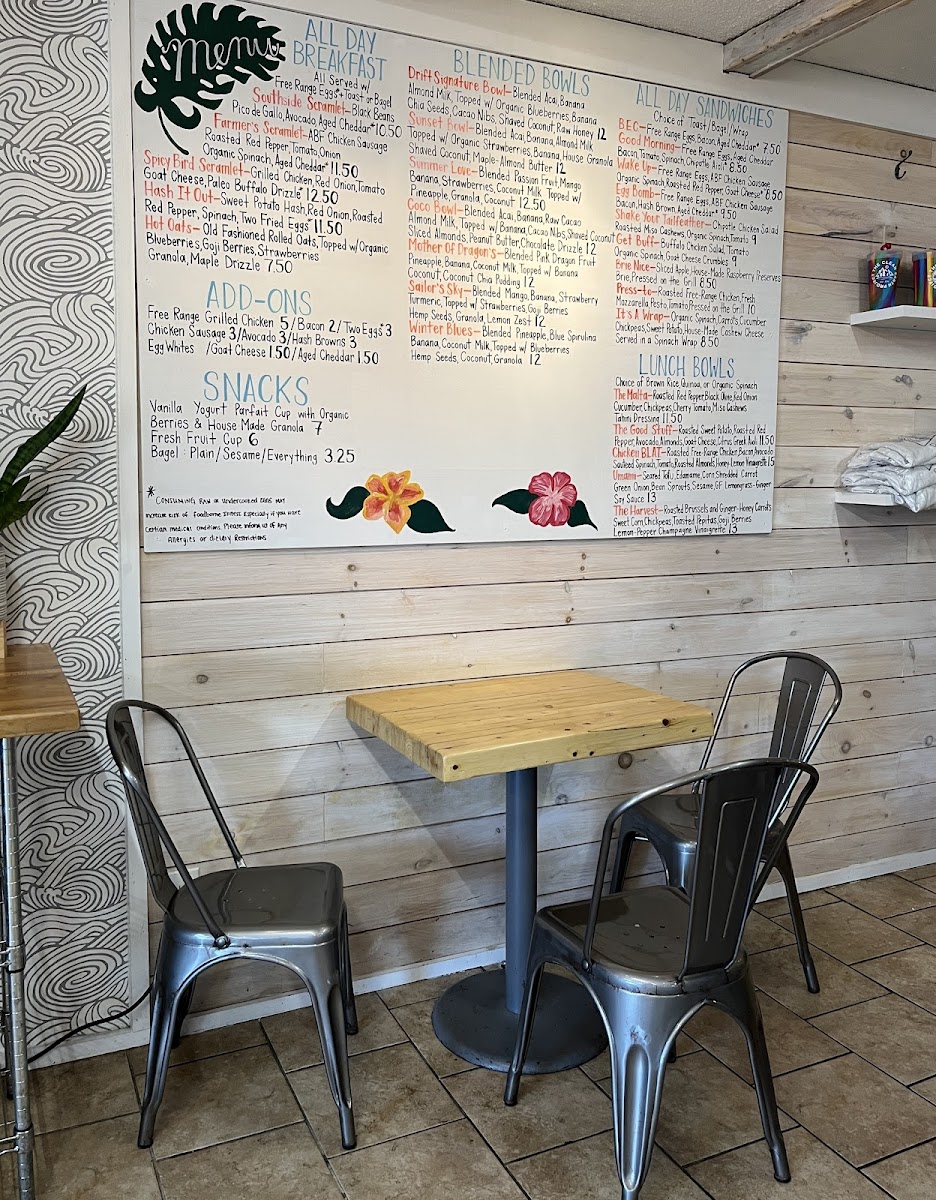 Menu
ALL DAY
BREAKFAST
All Served w/
Free Range Eggs*+Toast or Bagel
Southside Scramlet-Black Beans
Pico de Gallo, Avocado, Aged Cheddar* 10.50
Farmer's Scramlet-ABF Chicken Sausage
Roasted Red Pepper, Tomato, Onion
Organic Spinach, Aged Cheddar* 11.50
Spicy Bird Scramlet-Grilled Chicken, Red Onion, Tomato
Goat Cheese, Paleo Buffalo Drizzle* 12.50
Hash It Out-Sweet Potato Hash, Red Onion, Roasted
Red Pepper, Spinach, Two Fried Eggs* 11.50
Hot Oats- Old Fashioned Rolled Oats, Topped w/Organic
Blueberries, Goji Berries, Strawberries
Granola, Maple Drizzle 7.50
ADD-ONS
Free Range Grilled Chicken 5/Bacon 2/Two Eggs* 3
Chicken Sausage 3/Avocado 3/Hash Browns 3
Egg Whites /Goat Cheese 1.50/Aged Cheddar 1.50
SNACKS
Vanilla Yogurt Parfait Cup with Organic
Berries & House Made Granola 7
Fresh Fruit Cup 6
Bagel: Plain/Sesame/Everything 3.25
* Consuming raw or undercooked eggs may
increase risk of foodborne illness especially if you have
certain medical conditions. Please inform us of any
Allergies or dietary restrictions
BLENDED BOWLS
Drift Signature Bowl-Blended Acai, Banana
Almond Milk, Topped w/ Organic Blueberries, Banana
Chia Seeds, Cacao Nibs, Shaved Coconut, Raw Honey 12
Sunset Bowl-Blended Acai, Banana, Almond Milk
Topped w/ Organic Strawberries, Banana, House Granola
Shaved Coconut, Maple-Almond Butter 12
Summer Love-Blended Passion Fruit, Mango
Banana, Strawberries, Coconut Milk. Topped w/
Pineapple, Granola, Coconut 12.50
Coco Bowl-Blended Acai, Banana, Raw Cacao
Almond Milk, Topped w/Banana, Cacao Nibs, Shaved Coconut
Sliced Almonds, Peanut Butter, Chocolate Drizzle 12
Mother of Dragon's-Blended Pink Dragon Fruit
Pineapple, Banana, Coconut Milk, Topped w/ Banana
Coconut, Coconut Chia Pudding 12
Sailor's Sky-Blended Mango, Banana, Strawberry
Turmeric, Topped w/Strawberries, Goji Berries
Hemp Seeds, Granola, Lemon Zest 12
Winter Blues-Blended Pineapple, Blue Spirulina
Banana, Coconut Milk, Topped w/ Blueberries
Hemp Seeds, Coconut, Granola 12
ALL DAY SANDWICHES
Choice of Toast/Bagel/Wrap
B.E.C-Free Range Eggs, Bacon, Aged Cheddar* 7.50
Good Morning-Free Range Eggs, Aged Cheddar
Bacon, Tomato, Spinach, Chipotle Aioli* 8.50
Wake Up-Free Range Eggs, ABF Chicken Sausage
Organic Spinach, Roasted Red Pepper, Goat Cheese* 8.50
Egg Bomb-Free Range Eggs, ABF Chicken Sausage
Bacon, Hash Brown, Aged Cheddar* 9.50
Shake Your Tailfeather-Chipotle Chicken Salad
Roasted Miso Cashews, Organic Spinach, Tomato 9
Get Buff-Buffalo Chicken Salad, Tomato
Organic Spinach, Goat Cheese Crumbles 9
Brie Nice-Sliced Apple, House-Made Raspberry Preserves
Brie, Pressed on the Grill 8.50
Press-to-Roasted Free-Range Chicken, Fresh
Mozzarella, Pesto, Tomato, Pressed on the Grill 10
It's A Wrap-Organic Spinach, Carrots, Cucumber
Chickpeas, Sweet Potato, House-Made Cashew Cheese
Served in a Spinach Wrap 8.50
LUNCH BOWLS
Choice of Brown Rice, Quinoa, or Organic Spinach
The Malta-Roasted Red Pepper, Black Olive, Red Onion
Cucumber, Chickpeas, Cherry Tomato, Miso Cashews
Tahini Dressing 11.50
The Good Stuff-Roasted Sweet Potato, Roasted Red
Pepper, Avocado, Almonds, Goat Cheese, Citrus Greek Aioli 11.50
Chicken BLAT-Roasted Free-Range Chicken, Bacon, Avocado
Sauteed Spinach, Tomato, Roasted Almonds, Honey Lemon Vinaigrette 15
Umami-Seared Tofu, Edamame, Corn, Shredded Carrot
Green Onion, Bean Sprouts, Sesame, GF Lemongrass-Ginger
Soy Sauce 13
The Harvest-Roasted Brussels and Ginger-Honey Carrots
Sweet Corn, Chickpeas, Toasted Pepitas, Goji Berries
Lemon-Pepper Champagne Vinaigrette 13